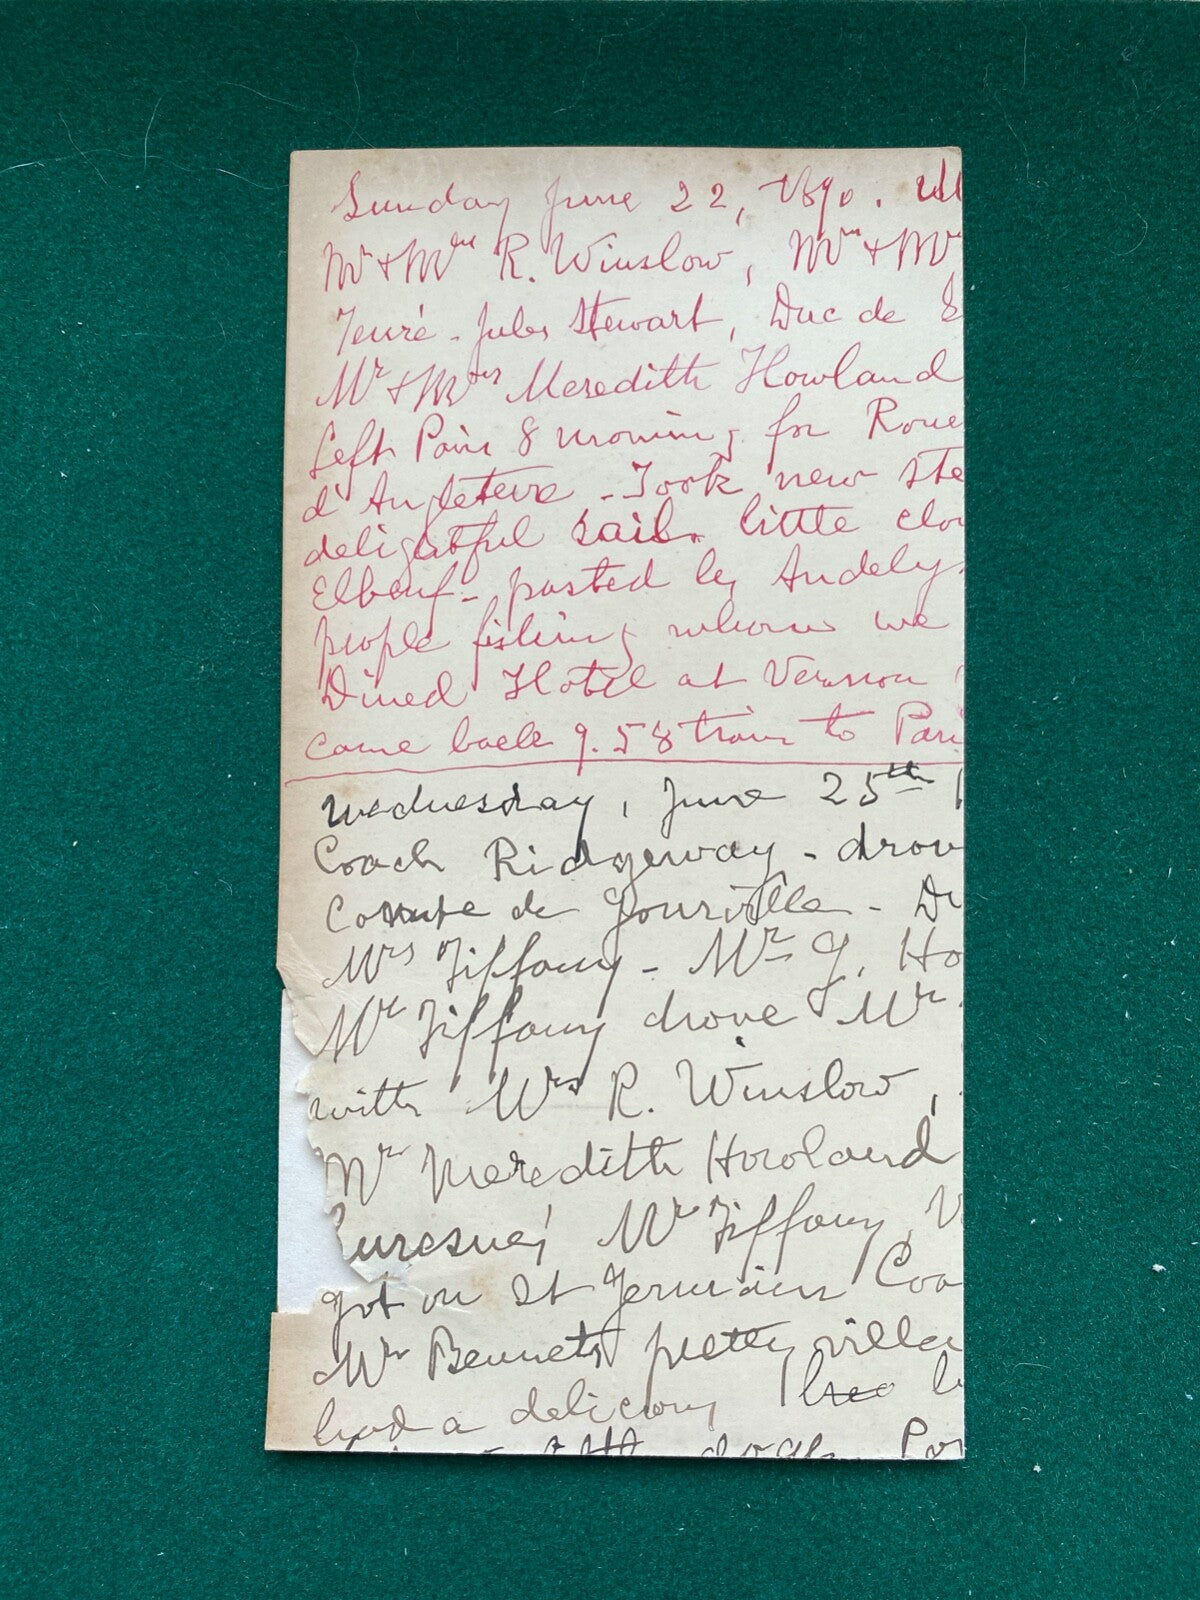 Sunday June 22, 1890.
Mr & Mrs R. Winslow, Mr & M
Jules Stewart, Duc de
Mr & Mrs Meredith Howland
Left Paris 8 morning for Roue
d'Angleterre - Took new ste
delightful sail. little clou
Elbeuf - passed by Andelys
people fishing whom we
Dined Hotel at Vernon
came back 9.58 train to Pari
Wednesday, June 25th
Coach Ridgeway - drov
Comte de Gourville - Du
Mrs Tiffany - Mr G. Ho
Mr Tiffany drove Mr
with Mrs R. Winslow,
Mr Meredith Howland
Suresnes Mr Tiffany
got on St Germain Coa
Mr Bennets pretty villa
had a delicious